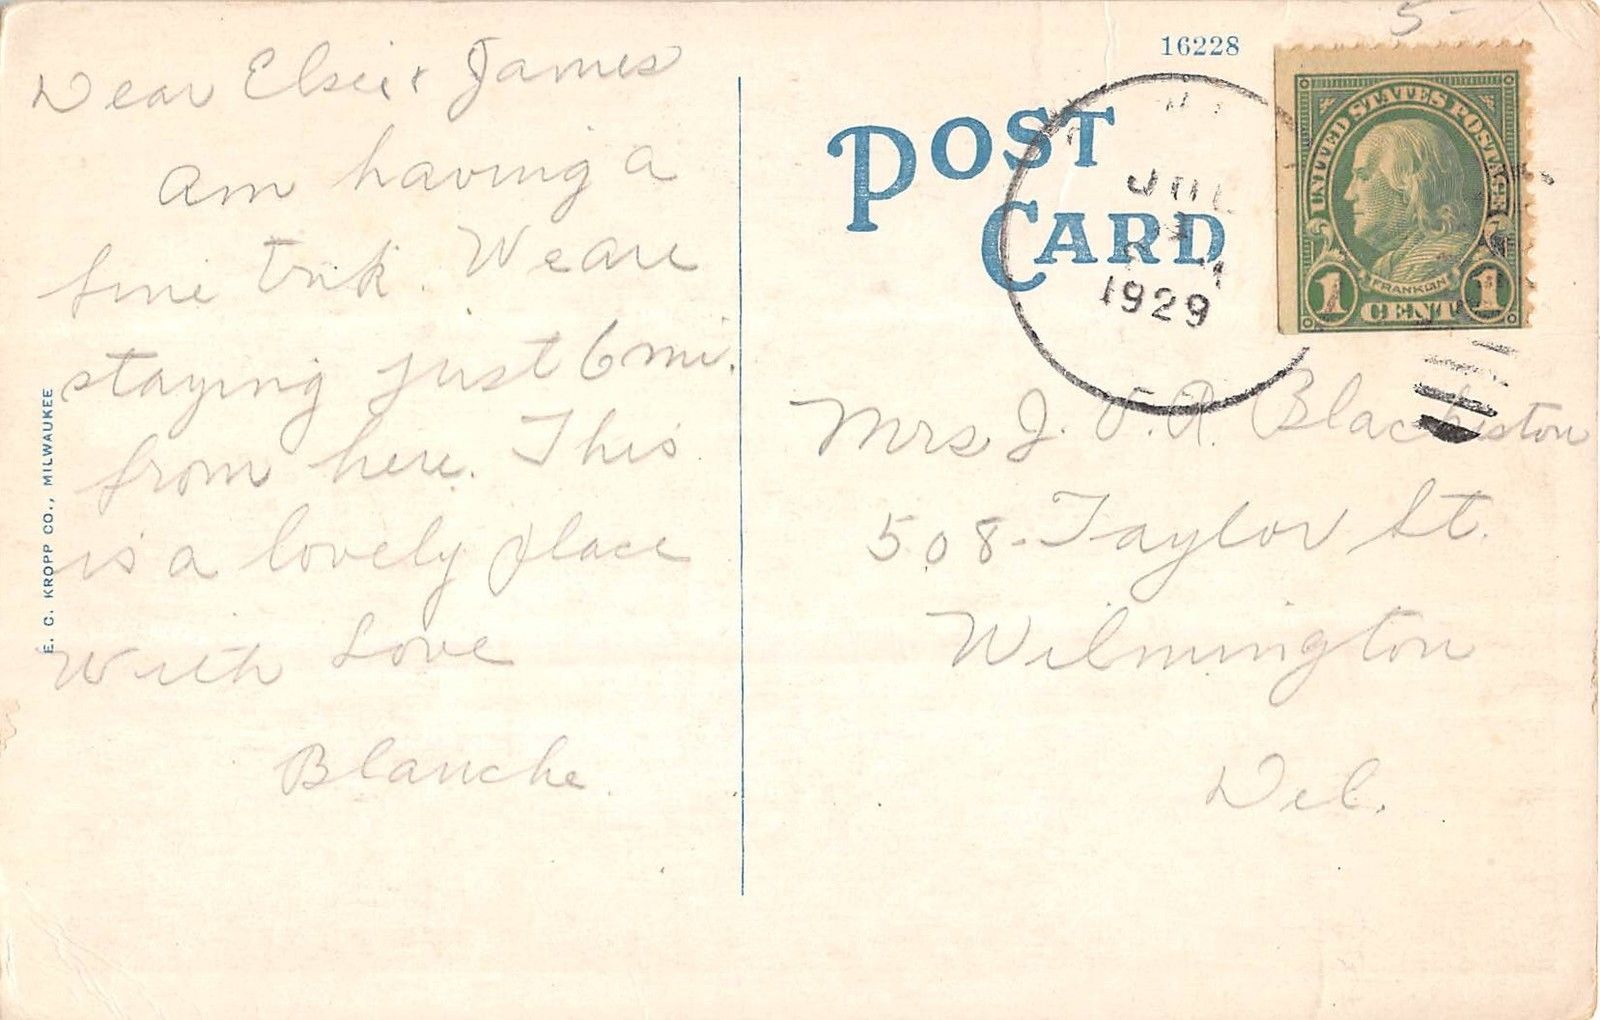 Dear Elsie & James
am having a
fine trip. We are
staying just 6 mi.
from here. This
is a lovely place
With Love
Blanche.
E. C. KROPP CO., MILWAUKEE
5-
16228
POST
CARD
JUL
1929
UNITED STATES POSTAGE
FRANKLIN
1 CENT 1
Mrs J. T. R. Blackiston
508 - Taylor St.
Wilmington
Del.